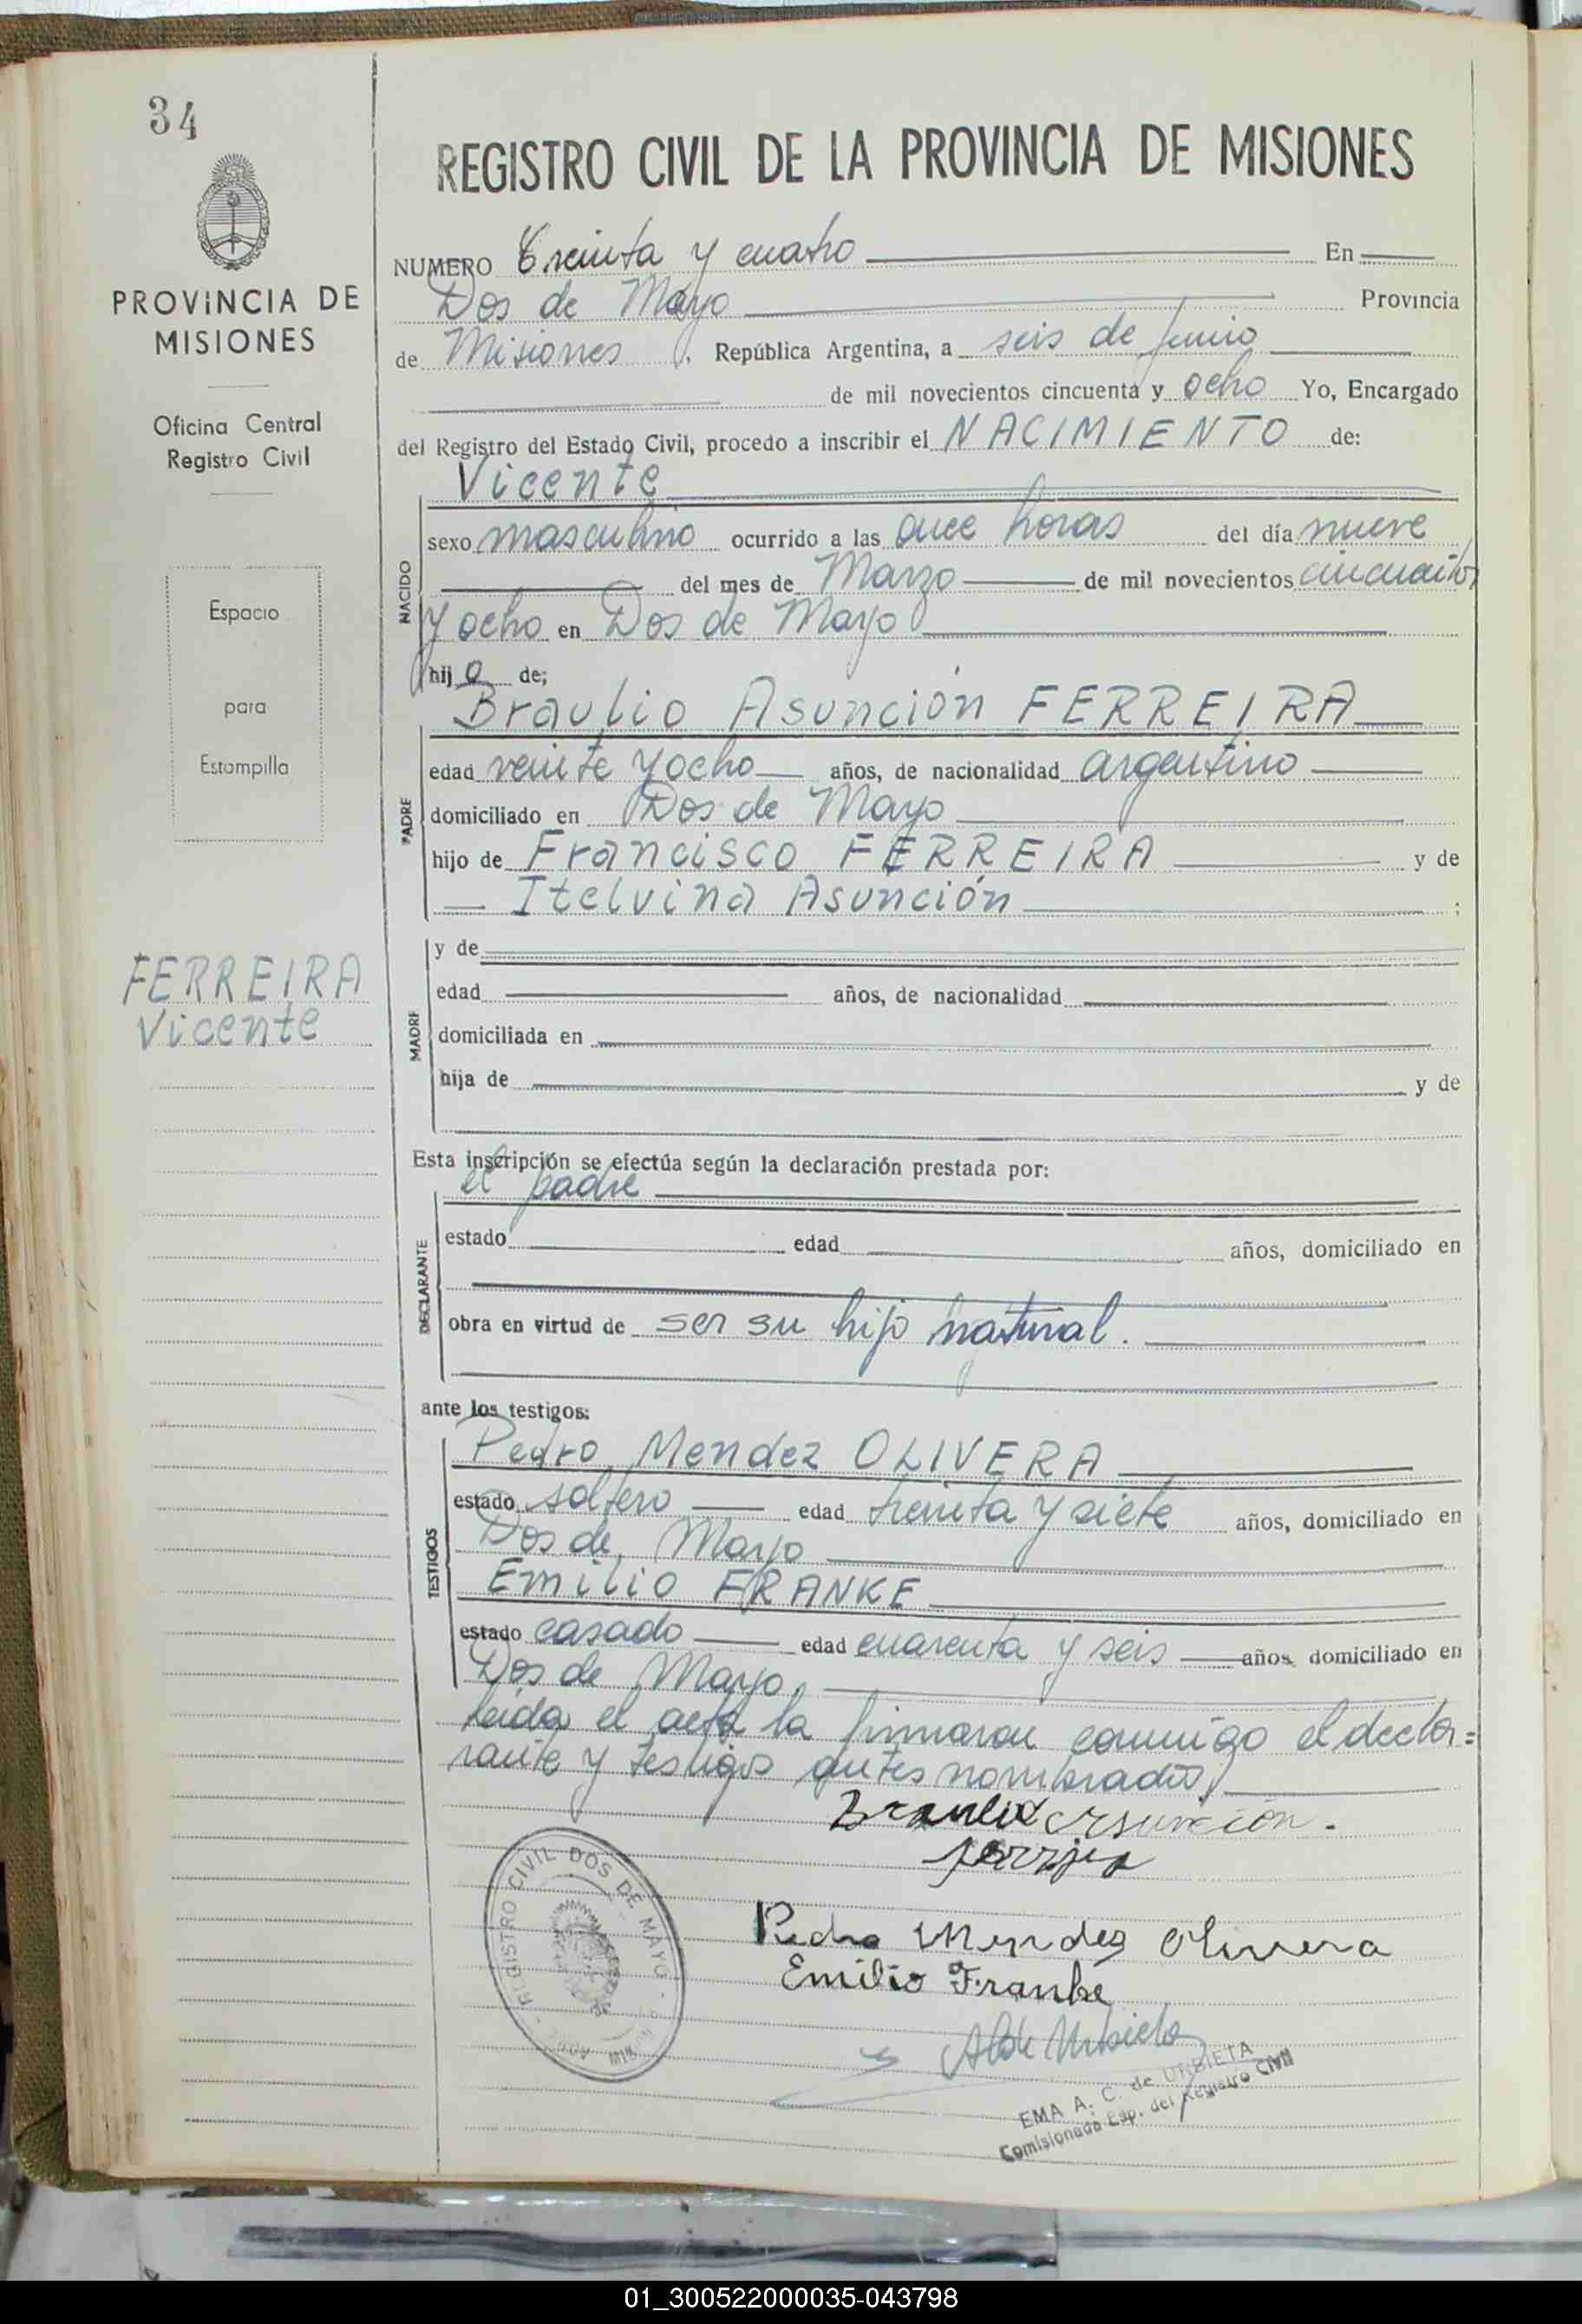 34
PROVINCIA DE
MISIONES
Oficina Central
Registro Civil
Espacio
para
Estampilla
FERREIRA
Vicente
REGISTRO CIVIL DE LA PROVINCIA DE MISIONES
NUMERO Treinta y cuatro En
Dos de Mayo Provincia
de Misiones, República Argentina, a seis de Junio
de mil novecientos cincuenta y ocho Yo, Encargado
del Registro del Estado Civil, procedo a inscribir el NACIMIENTO de:
Vicente
NACIDO
sexo masculino ocurrido a las once horas del día nueve
del mes de Marzo de mil novecientos cincuenta
y ocho en Dos de Mayo
hijo de;
Braulio Asunción FERREIRA
PADRE
edad veinte y ocho años, de nacionalidad argentino
domiciliado en Dos de Mayo
hijo de Francisco FERREIRA y de
Itelvina Asunción ;
MADRE
y de
edad años, de nacionalidad
domiciliada en
hija de y de
Esta inscripción se efectúa según la declaración prestada por:
el padre
DECLARANTE
estado edad años, domiciliado en
obra en virtud de ser su hijo natural.
ante los testigos:
Pedro Mendez OLIVERA
TESTIGOS
estado soltero edad treinta y siete años, domiciliado en
Dos de Mayo
Emilio FRANKE
estado casado edad cuarenta y seis años domiciliado en
Dos de Mayo.
Leida el acta la firmaron conmigo el decla=
rante y testigos antes nombrados
Braulio Asunción.
REGISTRO CIVIL DOS DE MAYO
Pedro Mendez Olivera
Emilio Franke
EMA A. C. de URBIETA
Comisionada Esp. del Registro Civil
01_300522000035-043798